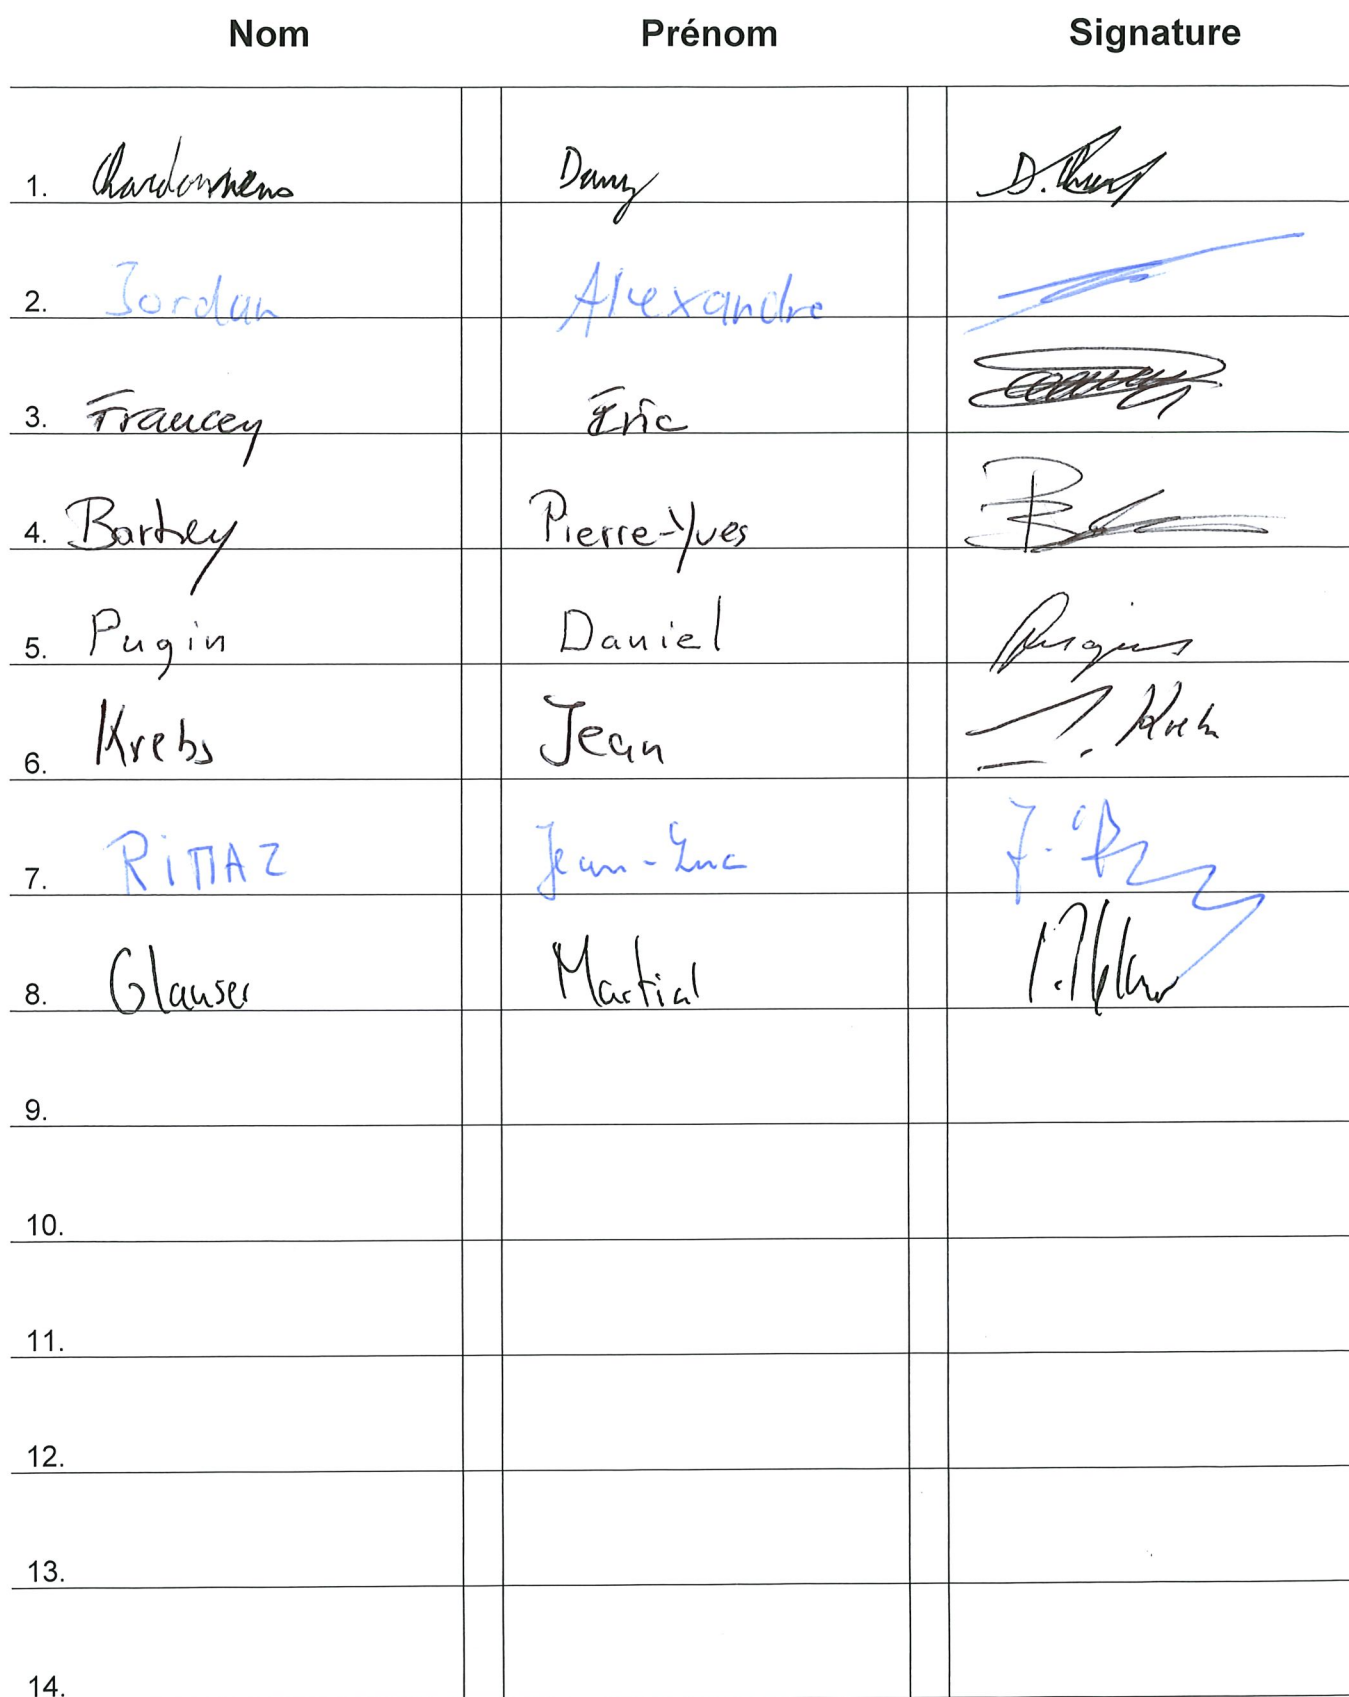 Nom Prénom Signature
1. Chardonnens Dany D. Chard
2. Jordan Alexandre
3. Francey Eric
4. Barbey Pierre-Yves
5. Pugin Daniel Pugin
6. Krebs Jean J. Krebs
7. RiMAZ Jean-Luc
8. Glauser Martial
9.
10.
11.
12.
13.
14.